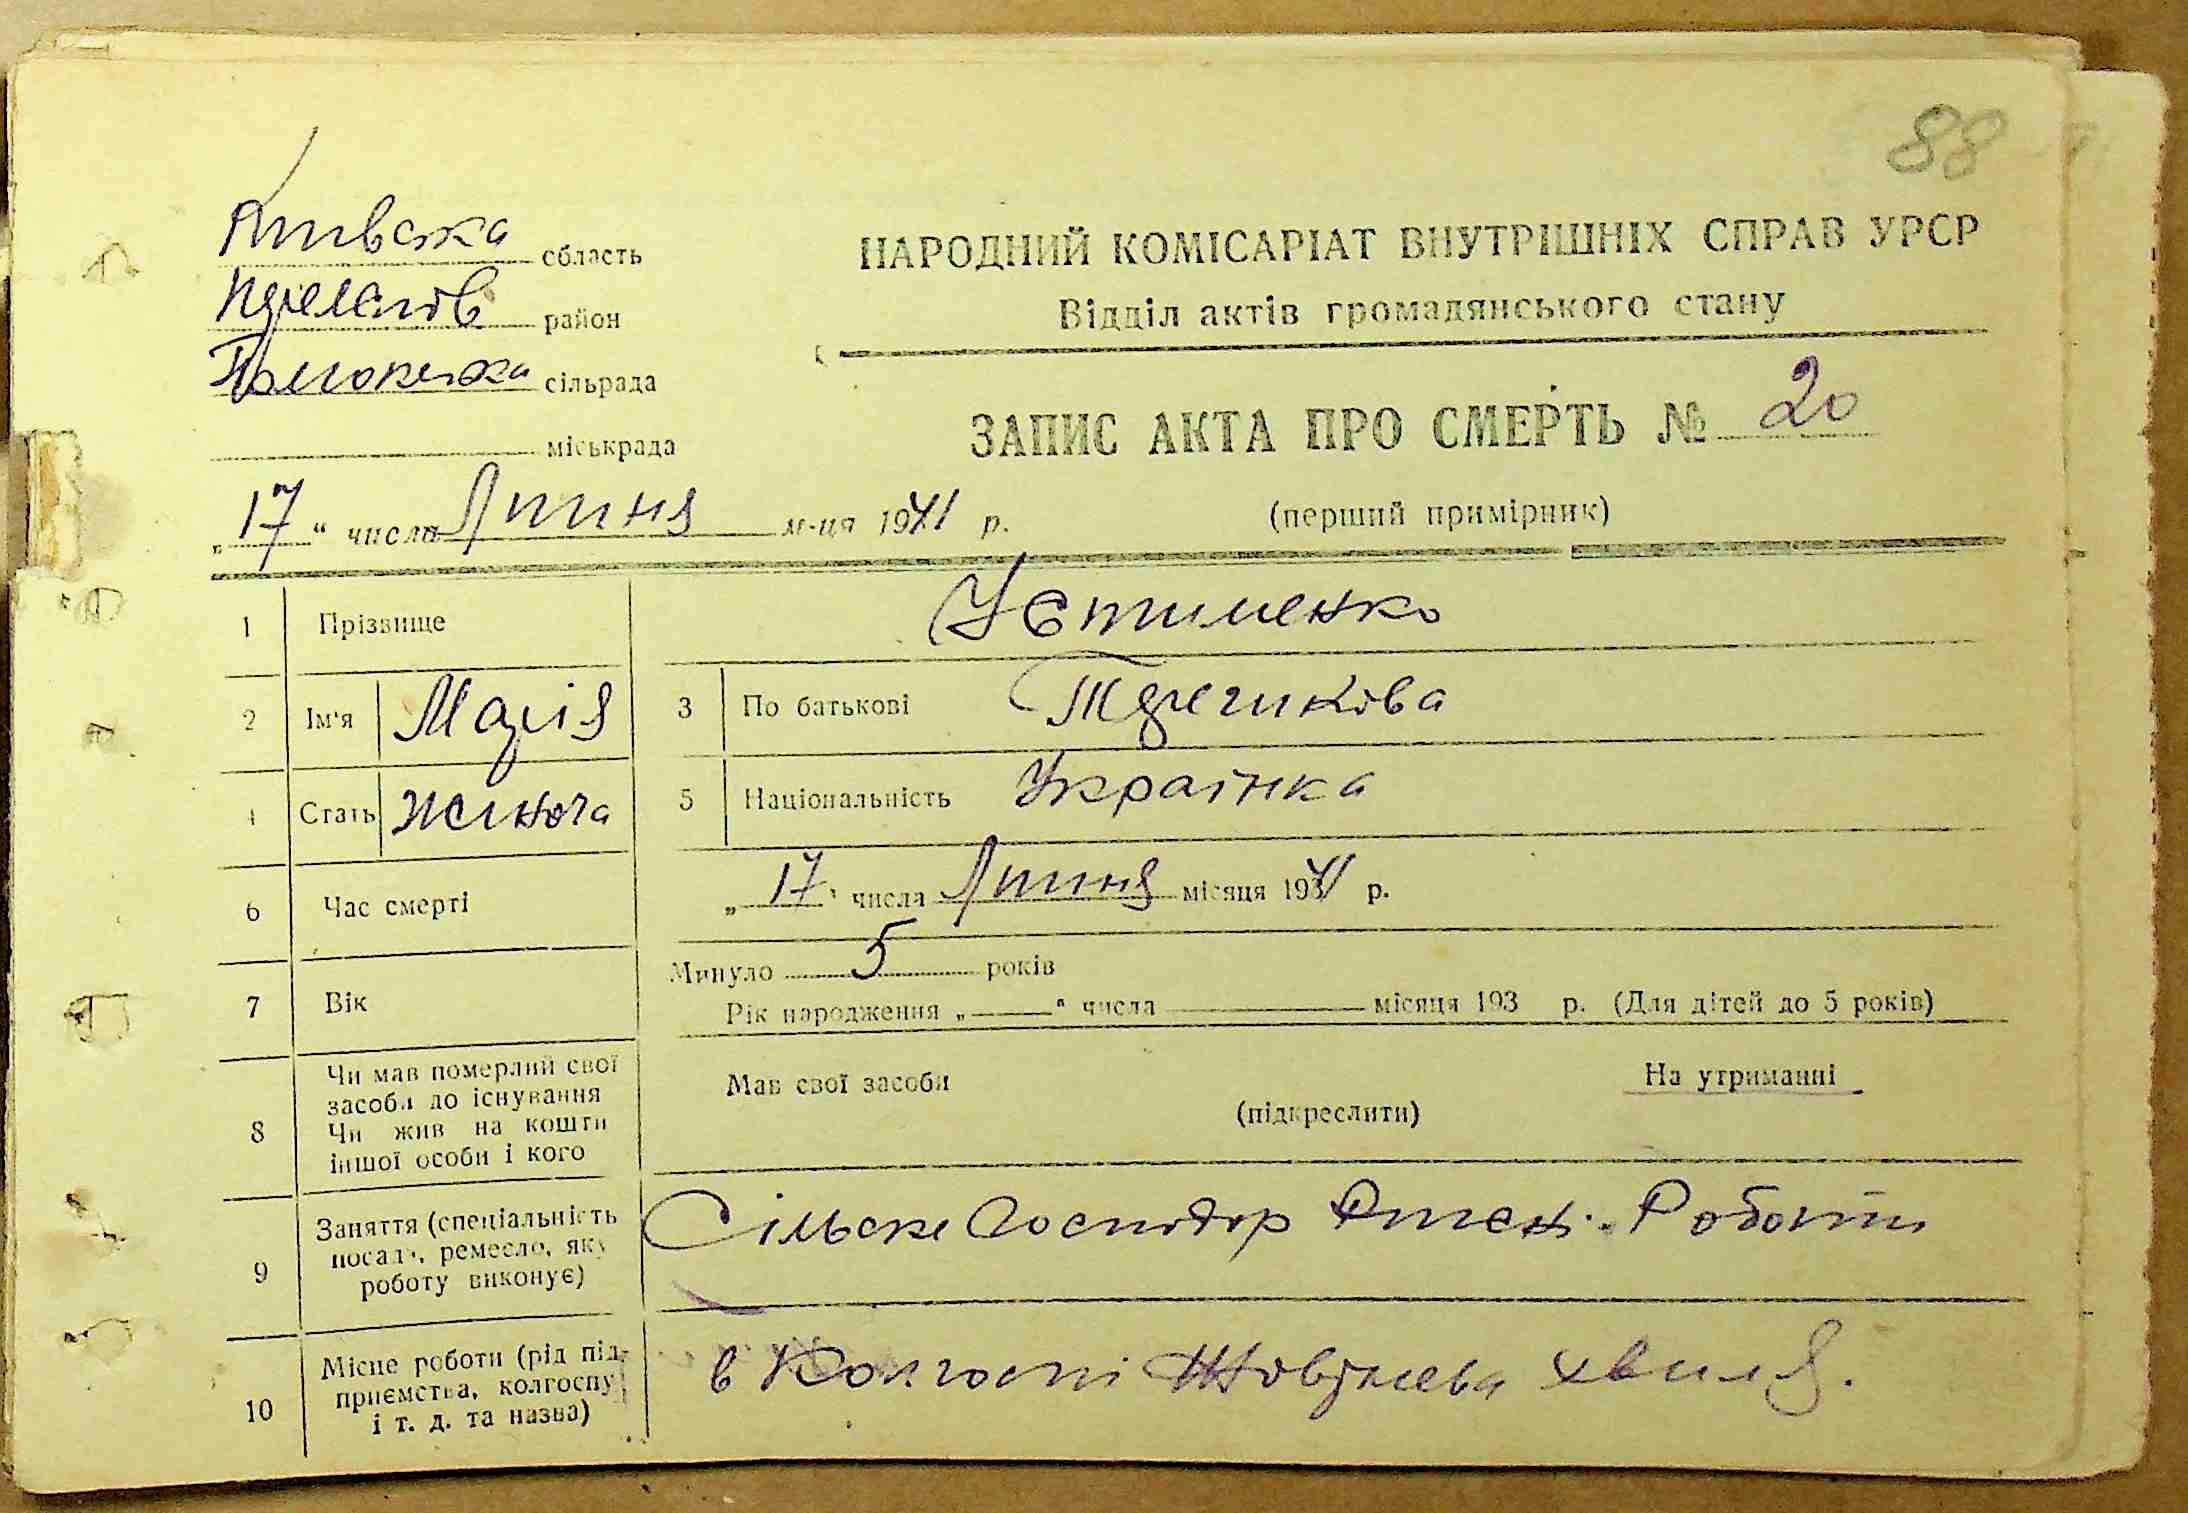 88
Київська область
район
сільрада
міськрада
НАРОДНИЙ КОМІСАРІАТ ВНУТРІШНІХ СПРАВ УРСР
Відділ актів громадянського стану
ЗАПИС АКТА ПРО СМЕРТЬ № 20
(перший примірник)
„17“ числа Липня м-ця 1941 р.
1 Прізвище Устименко
2 Ім'я Марія 3 По батькові
4 Стать жиноча 5 Національність Українка
6 Час смерті „17“ числа Липня місяця 1941 р.
7 Вік Минуло 5 років
Рік народження „ “ числа місяця 193 р. (Для дітей до 5 років)
8 Чи мав померлий свої
засоби до існування
Чи жив на кошти
іншої особи і кого
Мав свої засоби На утриманні
(підкреслити)
9 Заняття (спеціальність
посада, ремесло, яку
роботу виконує)
Сільське Господар Роботи
10 Місце роботи (рід під-
приємства, колгоспу
і т. д. та назва)
в Колгоспі Жовтнева хвиля.